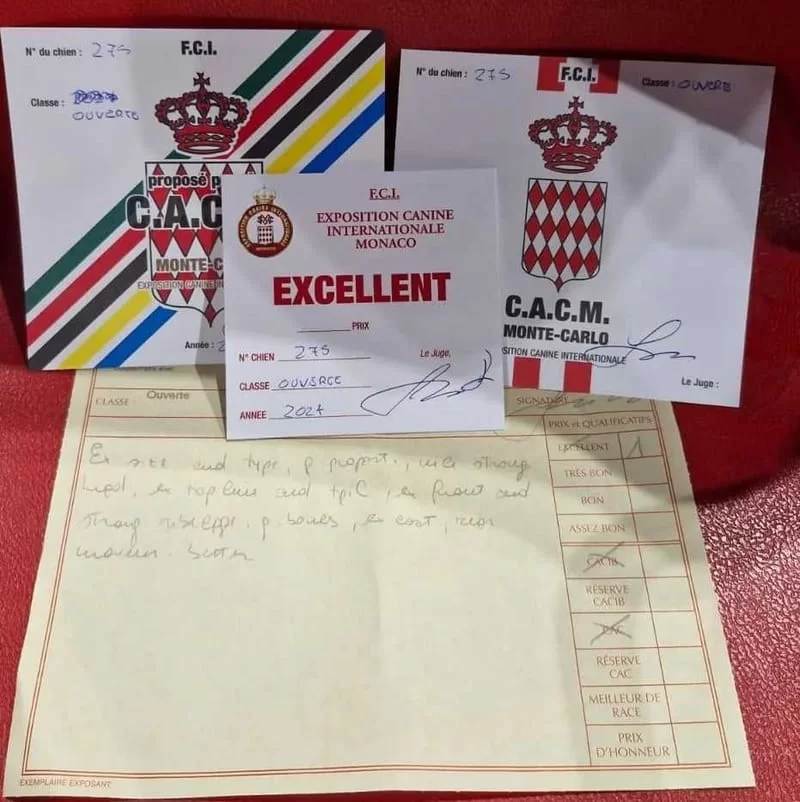 N° du chien : 275
F.C.I.
Classe :
OUVERTE
proposé p
C.A.C
MONTE-C
EXPOSITION CANINE IN
Année : 2
N° du chien : 275
F.C.I.
Classe : OUVERTE
C.A.C.M.
MONTE-CARLO
SITION CANINE INTERNATIONALE
Le Juge :
EXPOSITION CANINE INTERNATIONALE
MONACO
F.C.I.
EXPOSITION CANINE
INTERNATIONALE
MONACO
EXCELLENT
PRIX
N° CHIEN 275
Le Juge,
CLASSE OUVERTE
ANNEE 2024
CLASSE : Ouverte
SIGNATURE
PRIX et QUALIFICATIFS
EXCELLENT 1
TRÈS BON
BON
ASSEZ BON
CACIB
RÉSERVE
CACIB
CAC
RÉSERVE
CAC
MEILLEUR DE
RACE
PRIX
D'HONNEUR
Ex size and type, g proport., nice strong
head, ex topline and , ex front and
strong g. bones, ex coat,
EXEMPLAIRE EXPOSANT